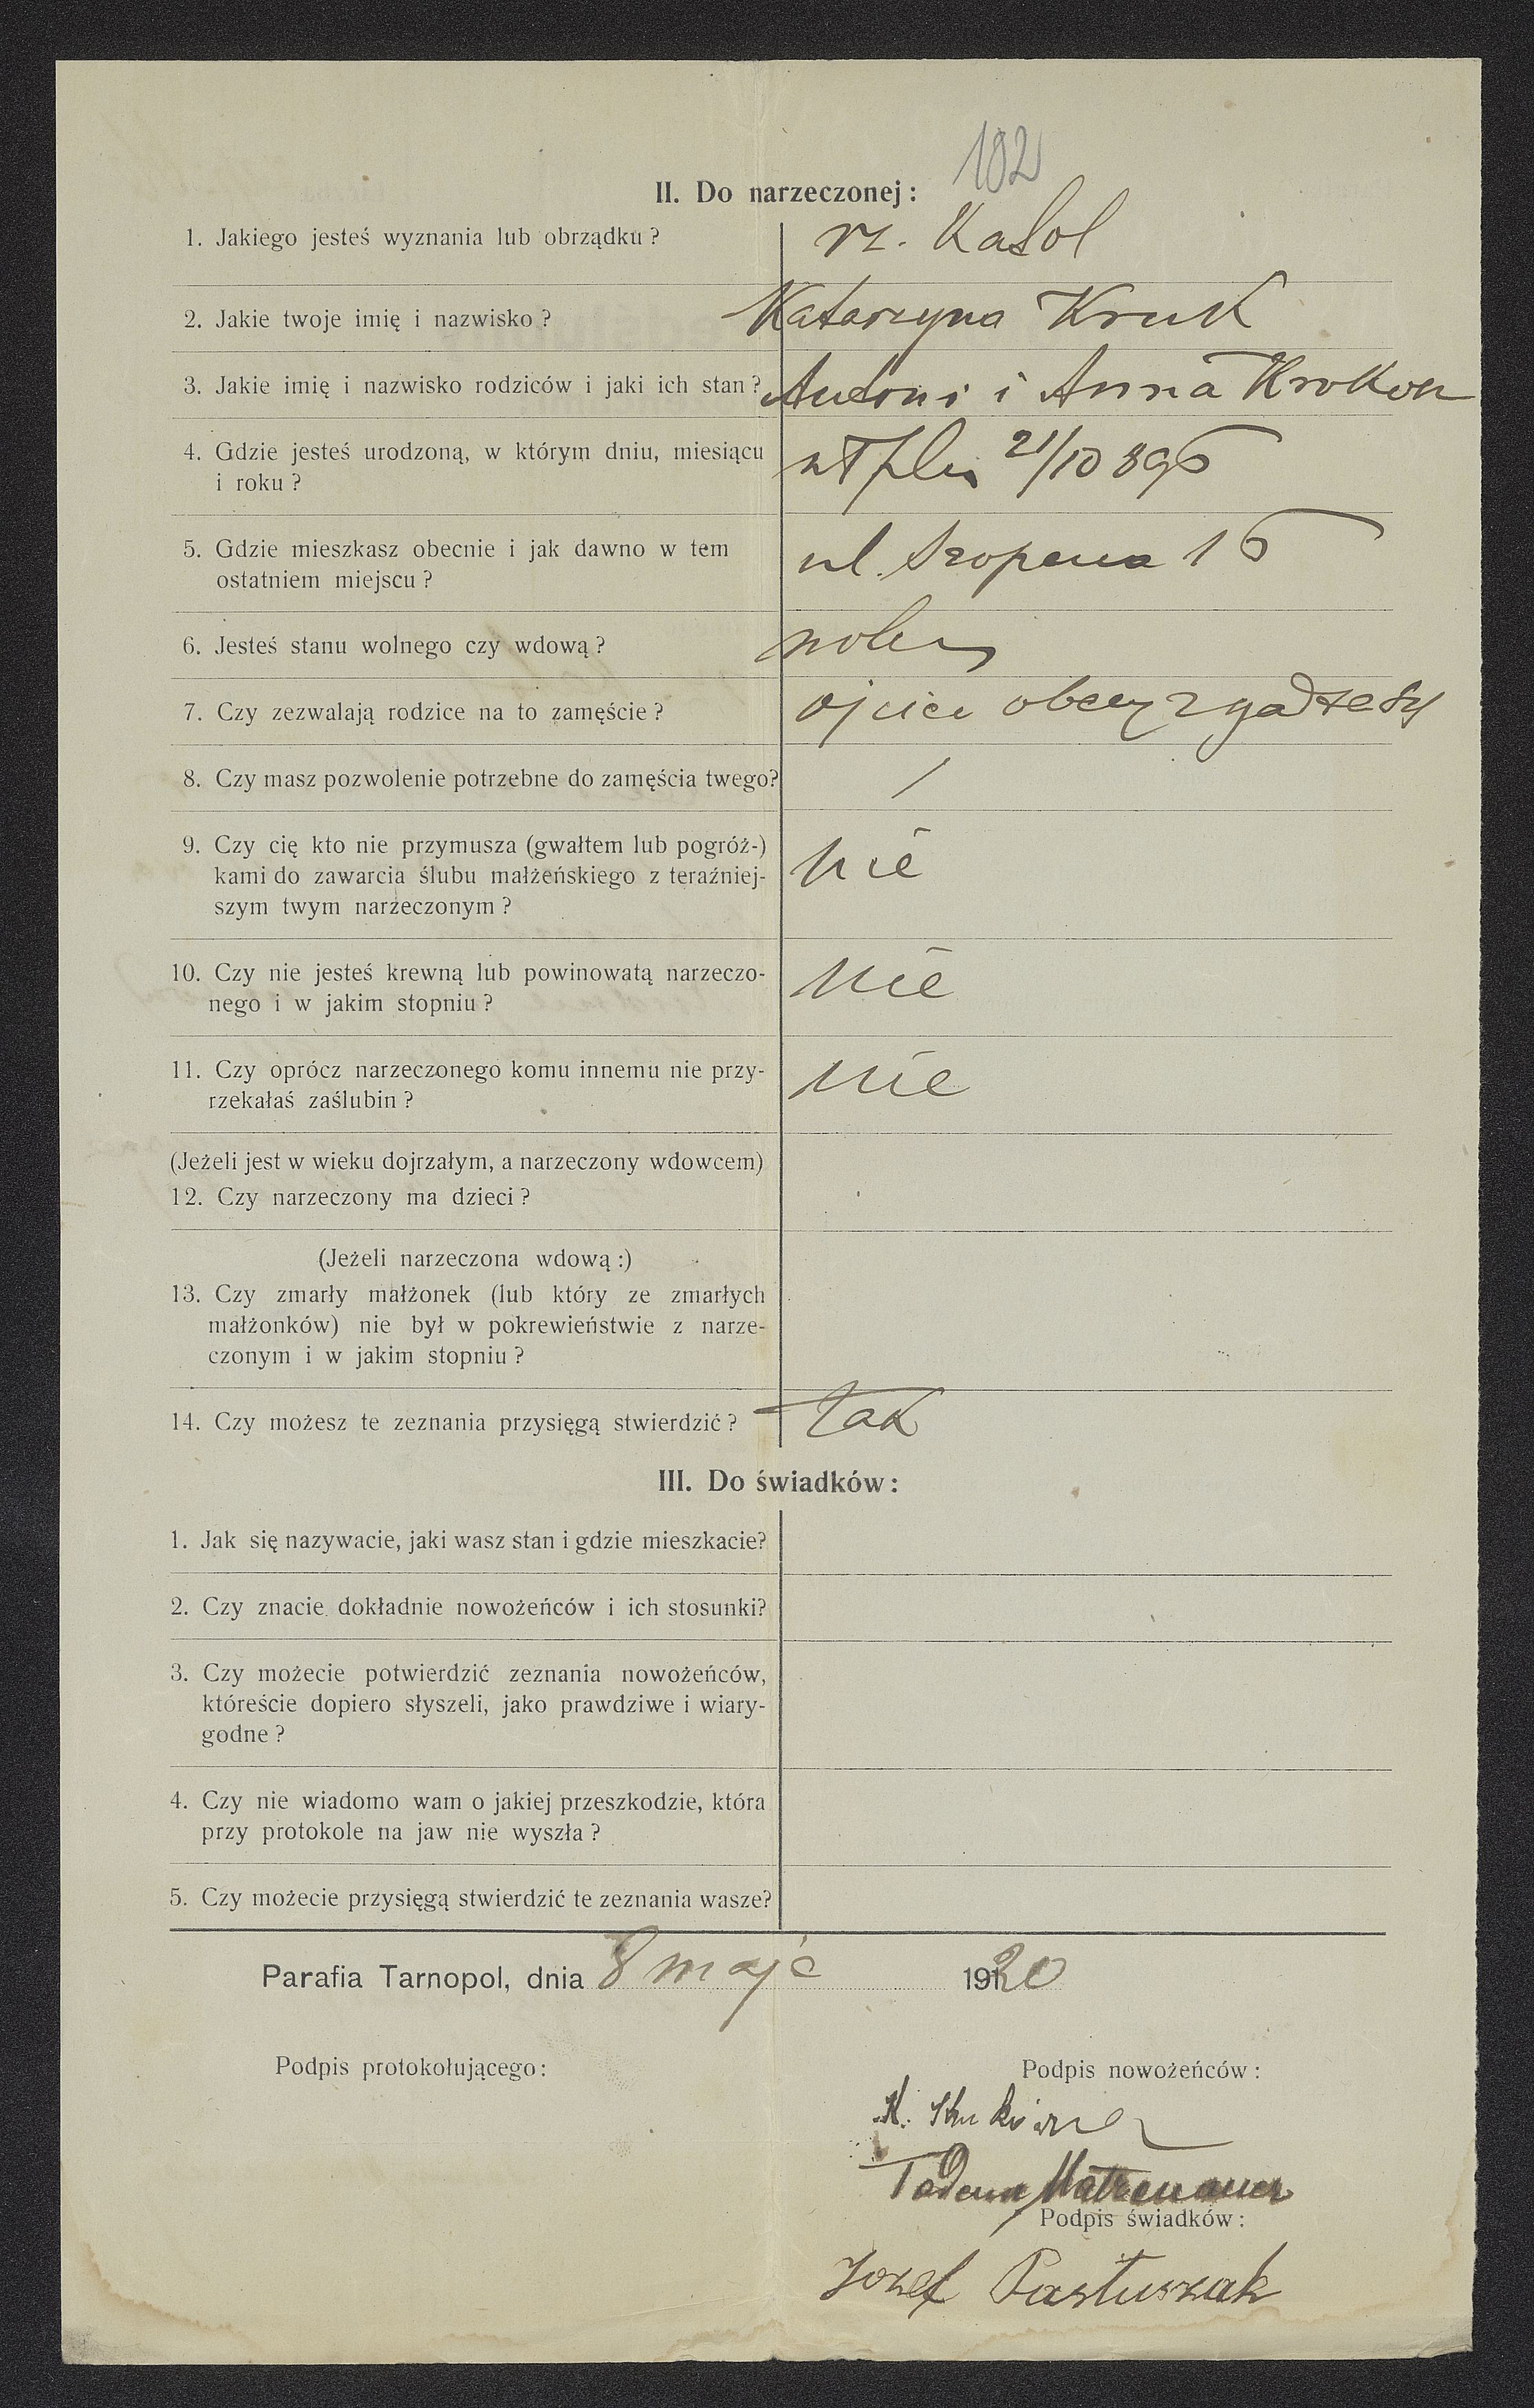 182
II. Do narzeczonej:
1. Jakiego jesteś wyznania lub obrządku?
rz. Katol
2. Jakie twoje imię i nazwisko?
Katarzyna Kruk
3. Jakie imię i nazwisko rodziców i jaki ich stan?
Antoni i Anna
4. Gdzie jesteś urodzoną, w którym dniu, miesiącu
i roku?
21/10 896
5. Gdzie mieszkasz obecnie i jak dawno w tem
ostatniem miejscu?
ul. Szopena 16
6. Jesteś stanu wolnego czy wdową?
7. Czy zezwalają rodzice na to zamęście?
8. Czy masz pozwolenie potrzebne do zamęścia twego?
/
9. Czy cię kto nie przymusza (gwałtem lub pogróż-)
kami do zawarcia ślubu małżeńskiego z teraźniej-
szym twym narzeczonym?
nie
10. Czy nie jesteś krewną lub powinowatą narzeczo-
nego i w jakim stopniu?
nie
11. Czy oprócz narzeczonego komu innemu nie przy-
rzekałaś zaślubin?
nie
(Jeżeli jest w wieku dojrzałym, a narzeczony wdowcem)
12. Czy narzeczony ma dzieci?
(Jeżeli narzeczona wdową:)
13. Czy zmarły małżonek (lub który ze zmarłych
małżonków) nie był w pokrewieństwie z narze-
czonym i w jakim stopniu?
14. Czy możesz te zeznania przysięgą stwierdzić?
tak
III. Do świadków:
1. Jak się nazywacie, jaki wasz stan i gdzie mieszkacie?
2. Czy znacie dokładnie nowożeńców i ich stosunki?
3. Czy możecie potwierdzić zeznania nowożeńców,
któreście dopiero słyszeli, jako prawdziwe i wiary-
godne?
4. Czy nie wiadomo wam o jakiej przeszkodzie, która
przy protokole na jaw nie wyszła?
5. Czy możecie przysięgą stwierdzić te zeznania wasze?
Parafia Tarnopol, dnia 8 maja 1920
Podpis protokołującego:
Podpis nowożeńców:
K.
Podpis świadków:
Józef Pastuszak